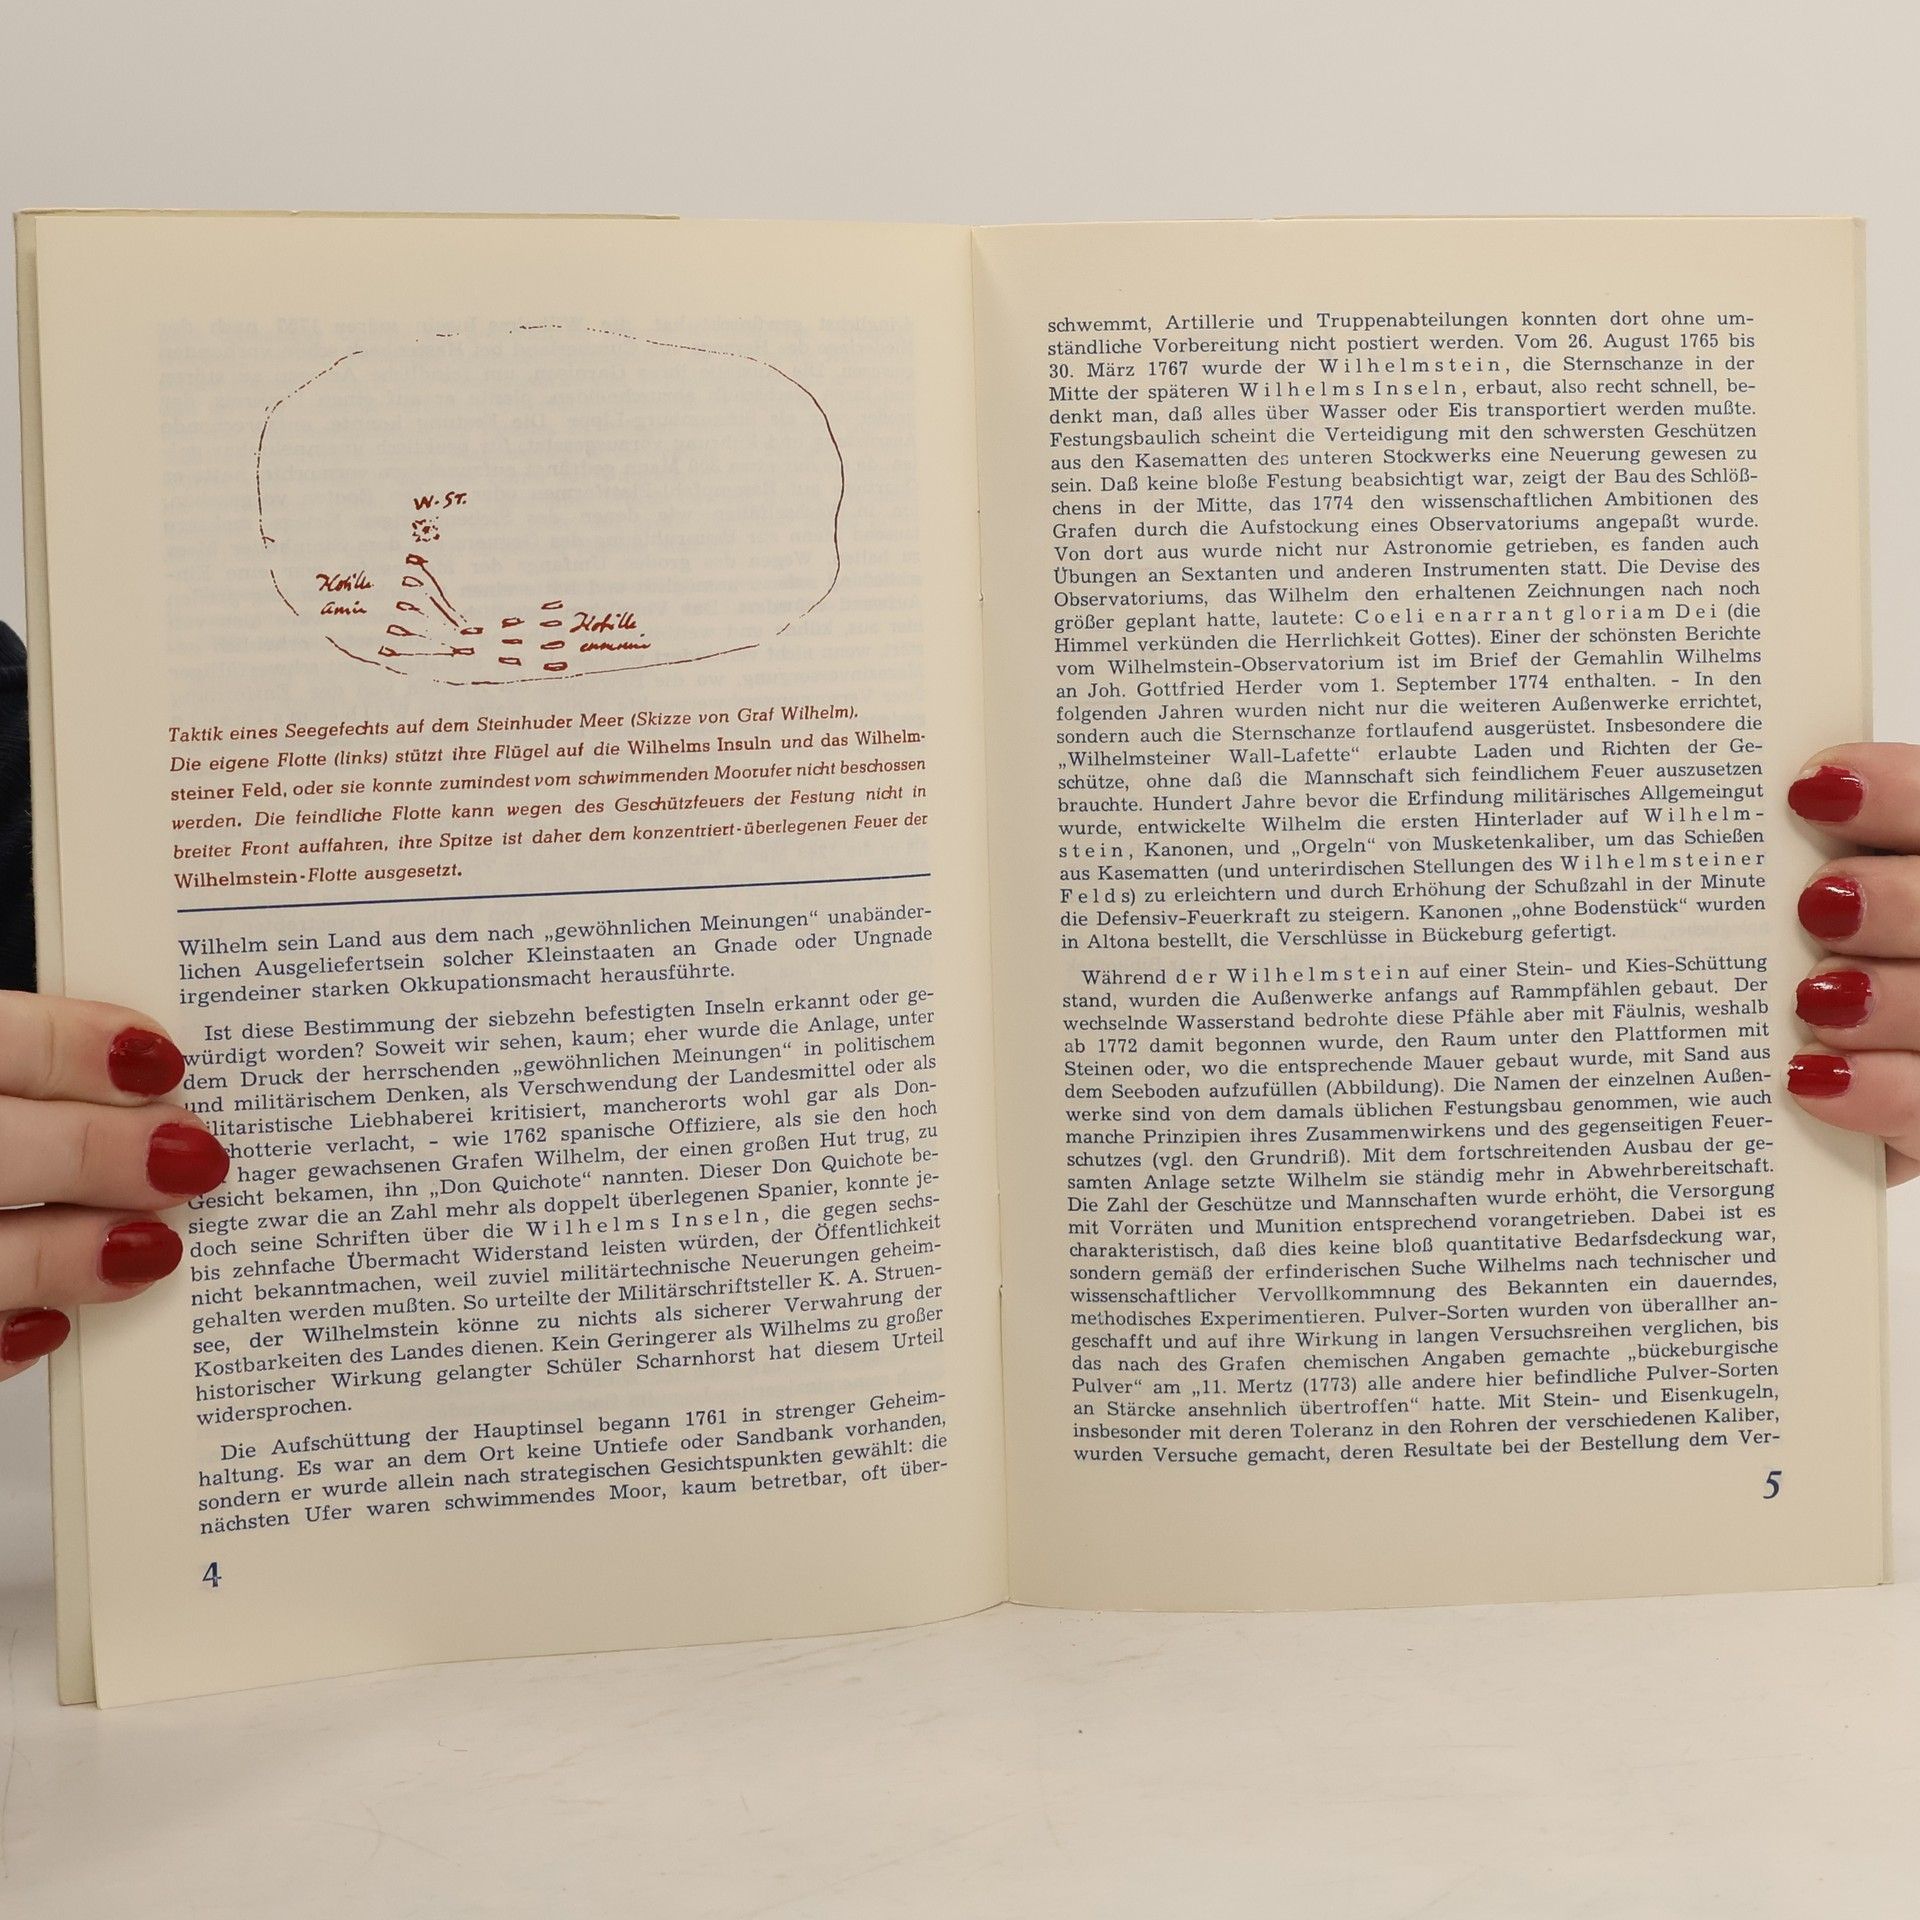 W-St.
Flotille
amie
Flotille
ennemie
Taktik eines Seegefechts auf dem Steinhuder Meer (Skizze von Graf Wilhelm).
Die eigene Flotte (links) stützt ihre Flügel auf die Wilhelms Insuln und das Wilhelm-
steiner Feld, oder sie konnte zumindest vom schwimmenden Moorufer nicht beschossen
werden. Die feindliche Flotte kann wegen des Geschützfeuers der Festung nicht in
breiter Front auffahren, ihre Spitze ist daher dem konzentriert-überlegenen Feuer der
Wilhelmstein-Flotte ausgesetzt.
Wilhelm sein Land aus dem nach „gewöhnlichen Meinungen“ unabänder-
lichen Ausgeliefertsein solcher Kleinstaaten an Gnade oder Ungnade
irgendeiner starken Okkupationsmacht herausführte.
Ist diese Bestimmung der siebzehn befestigten Inseln erkannt oder ge-
würdigt worden? Soweit wir sehen, kaum; eher wurde die Anlage, unter
dem Druck der herrschenden „gewöhnlichen Meinungen“ in politischem
und militärischem Denken, als Verschwendung der Landesmittel oder als
ilitaristische Liebhaberei kritisiert, mancherorts wohl gar als Don-
chotterie verlacht, – wie 1762 spanische Offiziere, als sie den hoch
hager gewachsenen Grafen Wilhelm, der einen großen Hut trug, zu
Gesicht bekamen, ihn „Don Quichote“ nannten. Dieser Don Quichote be-
siegte zwar die an Zahl mehr als doppelt überlegenen Spanier, konnte je-
doch seine Schriften über die Wilhelms Inseln, die gegen sechs-
bis zehnfache Übermacht Widerstand leisten würden, der Öffentlichkeit
nicht bekanntmachen, weil zuviel militärtechnische Neuerungen geheim-
gehalten werden mußten. So urteilte der Militärschriftsteller K. A. Struen-
see, der Wilhelmstein könne zu nichts als sicherer Verwahrung der
Kostbarkeiten des Landes dienen. Kein Geringerer als Wilhelms zu großer
historischer Wirkung gelangter Schüler Scharnhorst hat diesem Urteil
widersprochen.
Die Aufschüttung der Hauptinsel begann 1761 in strenger Geheim-
haltung. Es war an dem Ort keine Untiefe oder Sandbank vorhanden,
sondern er wurde allein nach strategischen Gesichtspunkten gewählt: die
nächsten Ufer waren schwimmendes Moor, kaum betretbar, oft über-
4
schwemmt, Artillerie und Truppenabteilungen konnten dort ohne um-
ständliche Vorbereitung nicht postiert werden. Vom 26. August 1765 bis
30. März 1767 wurde der Wilhelmstein, die Sternschanze in der
Mitte der späteren Wilhelms Inseln, erbaut, also recht schnell, be-
denkt man, daß alles über Wasser oder Eis transportiert werden mußte.
Festungsbaulich scheint die Verteidigung mit den schwersten Geschützen
aus den Kasematten des unteren Stockwerks eine Neuerung gewesen zu
sein. Daß keine bloße Festung beabsichtigt war, zeigt der Bau des Schlöß-
chens in der Mitte, das 1774 den wissenschaftlichen Ambitionen des
Grafen durch die Aufstockung eines Observatoriums angepaßt wurde.
Von dort aus wurde nicht nur Astronomie getrieben, es fanden auch
Übungen an Sextanten und anderen Instrumenten statt. Die Devise des
Observatoriums, das Wilhelm den erhaltenen Zeichnungen nach noch
größer geplant hatte, lautete: Coeli enarrant gloriam Dei (die
Himmel verkünden die Herrlichkeit Gottes). Einer der schönsten Berichte
vom Wilhelmstein-Observatorium ist im Brief der Gemahlin Wilhelms
an Joh. Gottfried Herder vom 1. September 1774 enthalten. – In den
folgenden Jahren wurden nicht nur die weiteren Außenwerke errichtet,
sondern auch die Sternschanze fortlaufend ausgerüstet. Insbesondere die
„Wilhelmsteiner Wall-Lafette“ erlaubte Laden und Richten der Ge-
schütze, ohne daß die Mannschaft sich feindlichem Feuer auszusetzen
brauchte. Hundert Jahre bevor die Erfindung militärisches Allgemeingut
wurde, entwickelte Wilhelm die ersten Hinterlader auf Wilhelm-
stein, Kanonen, und „Orgeln“ von Musketenkaliber, um das Schießen
aus Kasematten (und unterirdischen Stellungen des Wilhelmsteiner
Felds) zu erleichtern und durch Erhöhung der Schußzahl in der Minute
die Defensiv-Feuerkraft zu steigern. Kanonen „ohne Bodenstück“ wurden
in Altona bestellt, die Verschlüsse in Bückeburg gefertigt.
Während der Wilhelmstein auf einer Stein- und Kies-Schüttung
stand, wurden die Außenwerke anfangs auf Rammpfählen gebaut. Der
wechselnde Wasserstand bedrohte diese Pfähle aber mit Fäulnis, weshalb
ab 1772 damit begonnen wurde, den Raum unter den Plattformen mit
Steinen oder, wo die entsprechende Mauer gebaut wurde, mit Sand aus
dem Seeboden aufzufüllen (Abbildung). Die Namen der einzelnen Außen-
werke sind von dem damals üblichen Festungsbau genommen, wie auch
manche Prinzipien ihres Zusammenwirkens und des gegenseitigen Feuer-
schutzes (vgl. den Grundriß). Mit dem fortschreitenden Ausbau der ge-
samten Anlage setzte Wilhelm sie ständig mehr in Abwehrbereitschaft.
Die Zahl der Geschütze und Mannschaften wurde erhöht, die Versorgung
mit Vorräten und Munition entsprechend vorangetrieben. Dabei ist es
charakteristisch, daß dies keine bloß quantitative Bedarfsdeckung war,
sondern gemäß der erfinderischen Suche Wilhelms nach technischer und
wissenschaftlicher Vervollkommnung des Bekannten ein dauerndes,
methodisches Experimentieren. Pulver-Sorten wurden von überallher an-
geschafft und auf ihre Wirkung in langen Versuchsreihen verglichen, bis
das nach des Grafen chemischen Angaben gemachte „bückeburgische
Pulver“ am „11. Mertz (1773) alle andere hier befindliche Pulver-Sorten
an Stärcke ansehnlich übertroffen“ hatte. Mit Stein- und Eisenkugeln,
insbesonder mit deren Toleranz in den Rohren der verschiedenen Kaliber,
wurden Versuche gemacht, deren Resultate bei der Bestellung dem Ver-
5